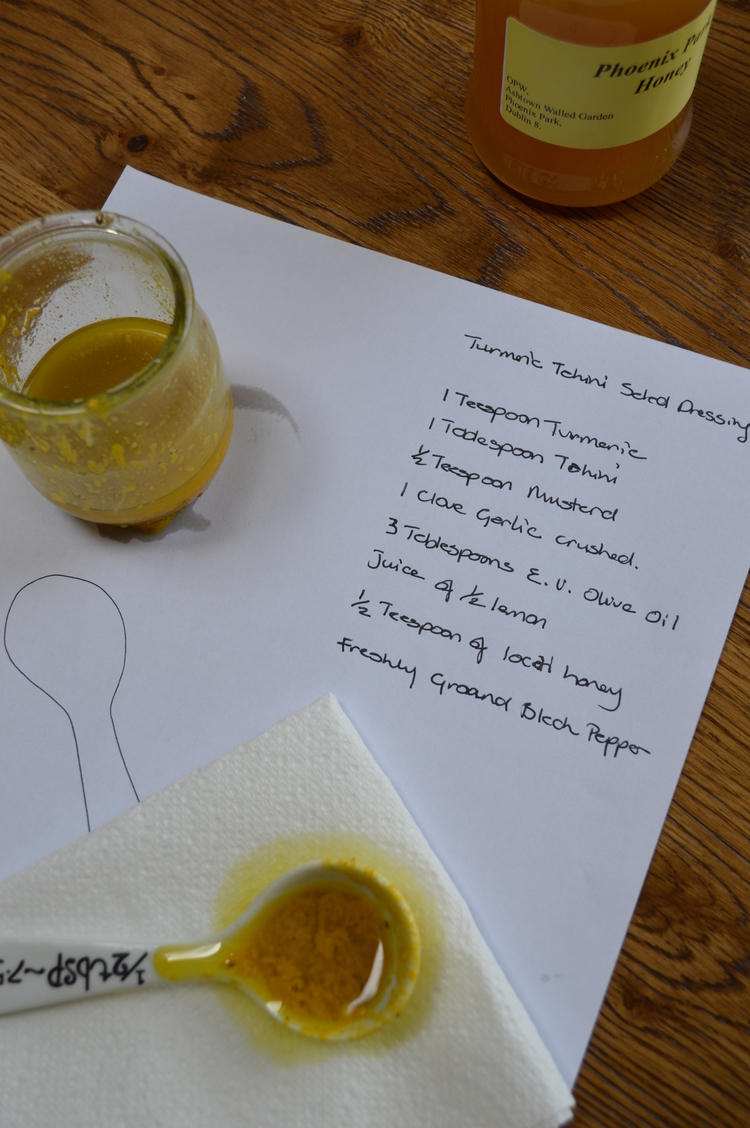 Phoenix Park
Honey
OPW,
Ashtown Walled Garden
Phoenix Park,
Dublin 8.
Turmeric Tahini Salad Dressing
1 Teaspoon Turmeric
1 Tablespoon Tahini
½ Teaspoon Mustard
1 Clove Garlic crushed.
3 Tablespoons E.V. Olive Oil
Juice of ½ lemon
½ Teaspoon of local honey
Freshly Ground Black Pepper
½tbsp~7.5